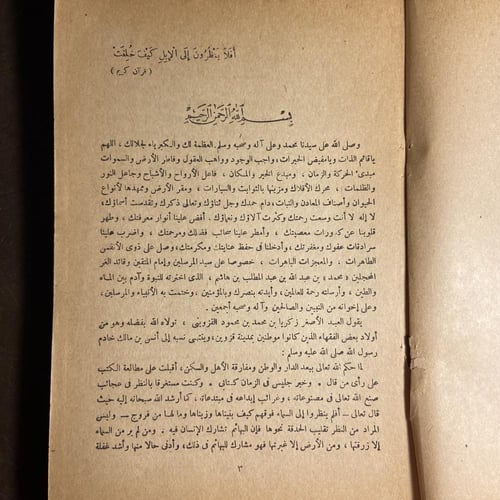 أفلا ينظرون إلى الإبل كيف خلقت
( قرآن كريم )
بسم الله الرحمن الرحيم
وصلى الله على سيدنا محمد وعلى آله وصحبه وسلم. العظمة لك والكبرياء لجلالك ، اللهم
ياقائم الذات ويامفيض الخيرات، واجب الوجود وواهب العقول وفاطر الأرض والسموات
مبدئ الحركة والزمان ، ومبدع الحيز والمكان ، فاعل الأرواح والأشباح وجاعل النور
والظلمات ، محرك الأفلاك ومزينها بالثوابت والسيارات ، ومقر الأرض وممهدها لأنواع
الحيوان وأصناف المعادن والنبات، دام حمدك وجل ثناؤك وتعالى ذكرك وتقدست أسماؤك،
لا إله إلا أنت وسعت رحمتك وكثرت آلاؤك ونعماؤك. أفض علينا أنوار معرفتك ، وطهر
قلوبنا عن كدورات معصيتك ، وأمطر علينا سحائب فضلك ومرحمتك، واضرب علينا
سرادقات عفوك ومغفرتك، وأدخلنا في حفظ عنايتك ومكرمتك، وصل على ذوي الأنفس
الطاهرات ، والمعجزات الباهرات ، خصوصا على سيد المرسلين وإمام المتقين وقائد الغر
المحجلين «محمد» بن عبد الله بن عبد المطلب بن هاشم ، الذي اخترته للنبوة وآدم بين الماء
والطين ، وأرسلته رحمة للعالمين، وأيدته بنصرك وبالمؤمنين ، وختمت به الأنبياء والمرسلين،
وعلى إخوانه من النبيين والصالحين وآله وصحبه أجمعين .
يقول العبد الأصغر زكريا بن محمد بن محمود القزويني ، تولاه الله بفضله وهو من
أولاد بعض الفقهاء الذين كانوا موطنين بمدينة قزوين، وينتهي نسبه إلى أنس بن مالك خادم
رسول الله صلى الله عليه وسلم :
لما حكم الله تعالى ببعد الدار والوطن ومفارقة الأهل والسكن، أقبلت على مطالعة الكتب
على رأي من قال . وخير جليس في الزمان كتابي . وكنت مستغرقا بالنظر في عجائب
صنع الله تعالى في مصنوعاته ، وغرائب إبداعه في مبتدعاته ، كما أرشد الله سبحانه إليه حيث
قال تعالى — أفلم ينظروا إلى السماء فوقهم كيف بنيناها وزيناها وما لها من فروج — وليس
المراد من النظر تقليب الحدقة نحوها فإن البهائم تشارك الإنسان فيه . ومن لم ير من السماء
إلا زرقتها ، ومن الأرض إلا غبرتها فهو مشارك للبهائم في ذلك، وأدنى حالا منها وأشد غفلة
٣